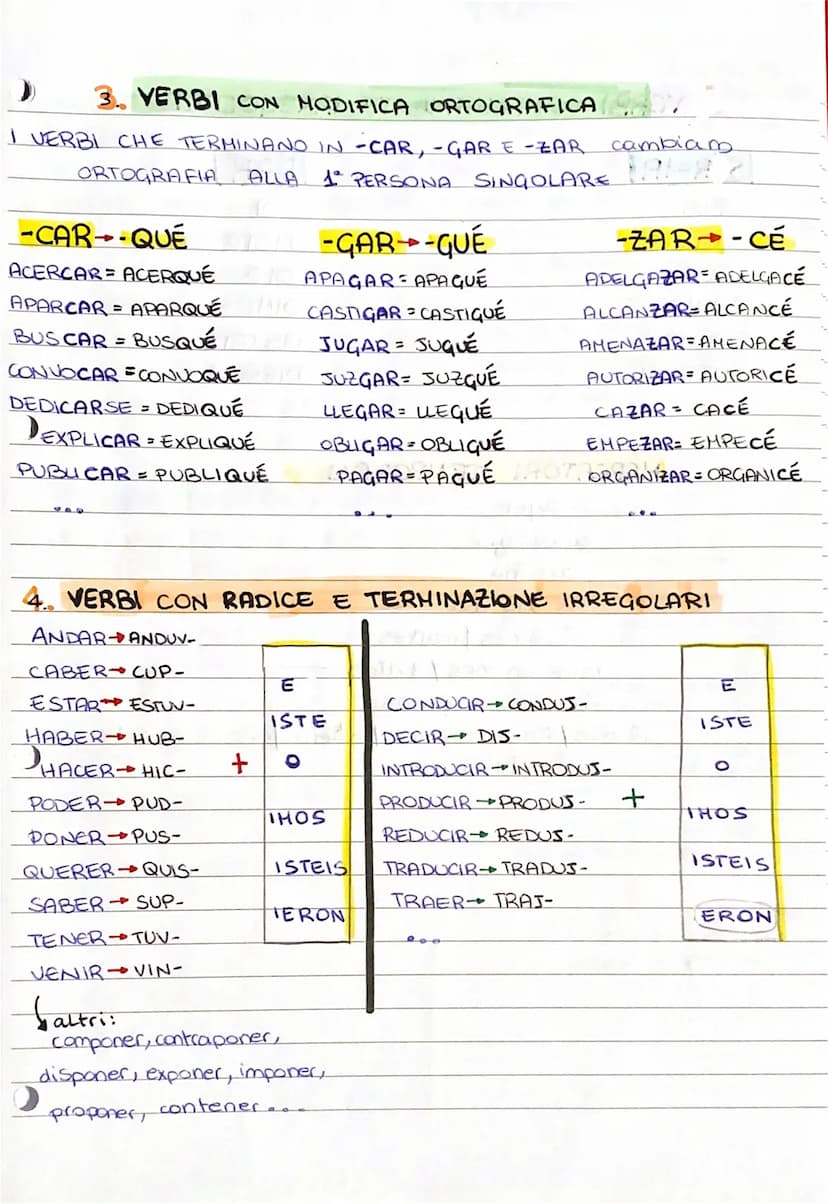 3. VERBI CON MODIFICA ORTOGRAFICA
I VERBI CHE TERMINANO IN -CAR, -GAR E -ZAR cambiano
ORTOGRAFIA ALLA 1ª PERSONA SINGOLARE
-CAR→-QUÉ
ACERCAR = ACERQUÉ
APARCAR = APARQUÉ
BUSCAR = BUSQUÉ
CONVOCAR = CONVOQUÉ
DEDICARSE = DEDIQUÉ
EXPLICAR = EXPLIQUÉ
PUBLICAR = PUBLIQUÉ
...
-GAR→-GUÉ
APAGAR = APAGUÉ
CASTIGAR = CASTIGUÉ
JUGAR = JUGUÉ
JUZGAR = JUZGUÉ
LLEGAR = LLEGUÉ
OBLIGAR = OBLIGUÉ
PAGAR = PAGUÉ
...
-ZAR→-CÉ
ADELGAZAR = ADELGACÉ
ALCANZAR = ALCANCÉ
AMENAZAR = AMENACÉ
AUTORIZAR = AUTORICÉ
CAZAR = CACÉ
EMPEZAR = EMPECÉ
ORGANIZAR = ORGANICÉ
...
4. VERBI CON RADICE E TERMINAZIONE IRREGOLARI
ANDAR→ANDUV-
CABER→CUP-
ESTAR→ESTUV-
HABER→HUB-
HACER→HIC-
PODER→PUD-
PONER→PUS-
QUERER→QUIS-
SABER→SUP-
TENER→TUV-
VENIR→VIN-
+
E
ISTE
O
IMOS
ISTEIS
IERON
altri:
componer, contraponer,
disponer, exponer, imponer,
proponer, contener...
CONDUCIR→CONDUJ-
DECIR→DIJ-
INTRODUCIR→INTRODUJ-
PRODUCIR→PRODUJ-
REDUCIR→REDUJ-
TRADUCIR→TRADUJ-
TRAER→TRAJ-
...
+
E
ISTE
O
IMOS
ISTEIS
ERON